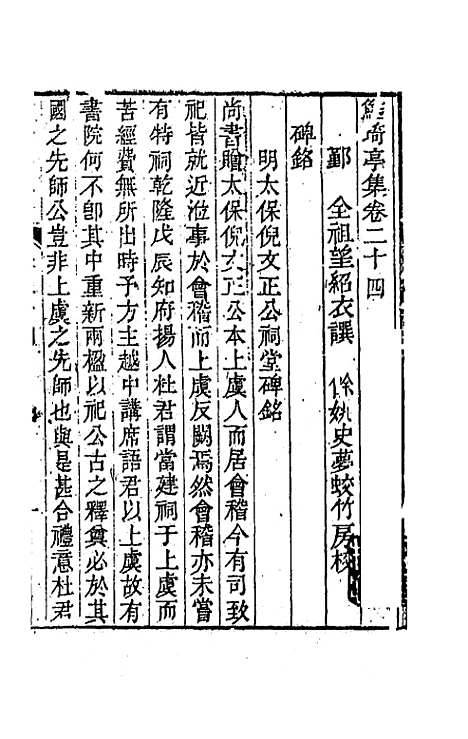 鮚埼亭集卷二十四
鄞　全祖望紹衣譔　餘姚史夢蛟竹房校
碑銘
明太保倪文正公祠堂碑銘
尚書贈太保倪文正公本上虞人而居會稽今有司致
祀皆就近涖事於會稽而上虞反闕焉然會稽亦未嘗
有特祠乾隆戊辰知府揚人杜君謂當建祠于上虞而
苦經費無所出時予方主越中講席語君以上虞故有
書院何不卽其中重新兩楹以祀公古之釋奠必於其
國之先師公豈非上虞之先師也與是甚合禮意杜君